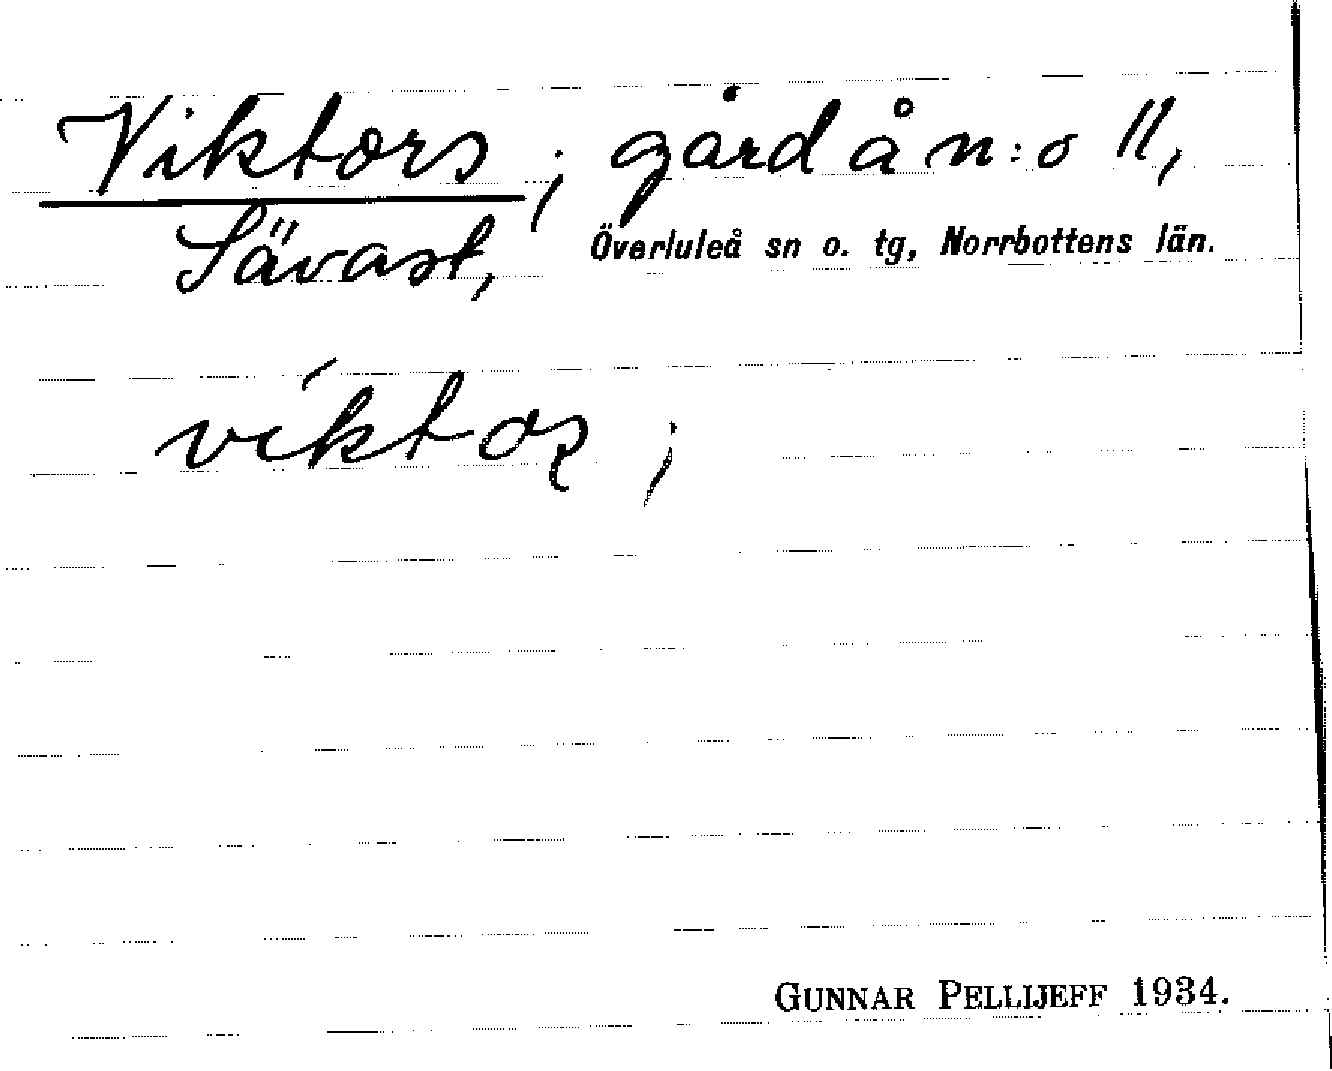 Viktors; gård å n:o 11,
Sävast, Överluleå sn o. tg, Norrbottens län.
víktoʂ;
GUNNAR PELLIJEFF 1934.